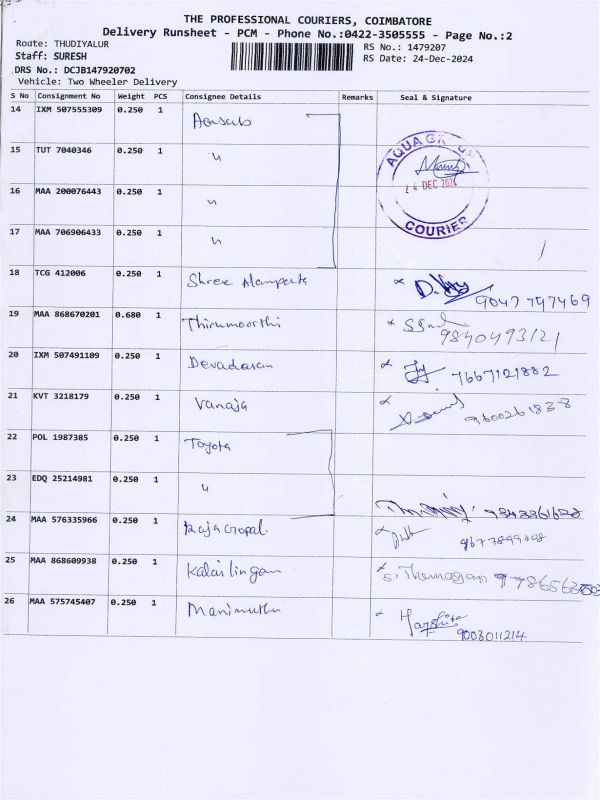 THE PROFESSIONAL COURIERS, COIMBATORE
Delivery Runsheet - PCM - Phone No.:0422-3505555 - Page No.:2
Route: THUDIYALUR RS No.: 1479207
Staff: SURESH RS Date: 24-Dec-2024
DRS No.: DCJB147920702
Vehicle: Two Wheeler Delivery
S No Consignment No Weight PCS Consignee Details Remarks Seal & Signature
14 IXM 507555309 0.250 1
15 TUT 7040346 0.250 1 〃
16 MAA 200076443 0.250 1 〃
17 MAA 706906433 0.250 1 〃
AQUA
24 DEC 2024
COURIER
18 TCG 412006 0.250 1 Shree 9047 797469
19 MAA 868670201 0.680 1 Thirumoorthi 9840493121
20 IXM 507491109 0.250 1 Devadasan 7667121882
21 KVT 3218179 0.250 1 Vanaja 9600261838
22 POL 1987385 0.250 1 Toyota
23 EDQ 25214981 0.250 1 〃
24 MAA 576335966 0.250 1 RajaGopal.
25 MAA 868609938 0.250 1 Kalailingam
26 MAA 575745407 0.250 1 Manimuthu 9003011214